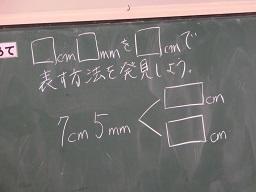 □cm□mmを□cmで
表す方法を発見しよう。
7cm5mm < □cm
□cm